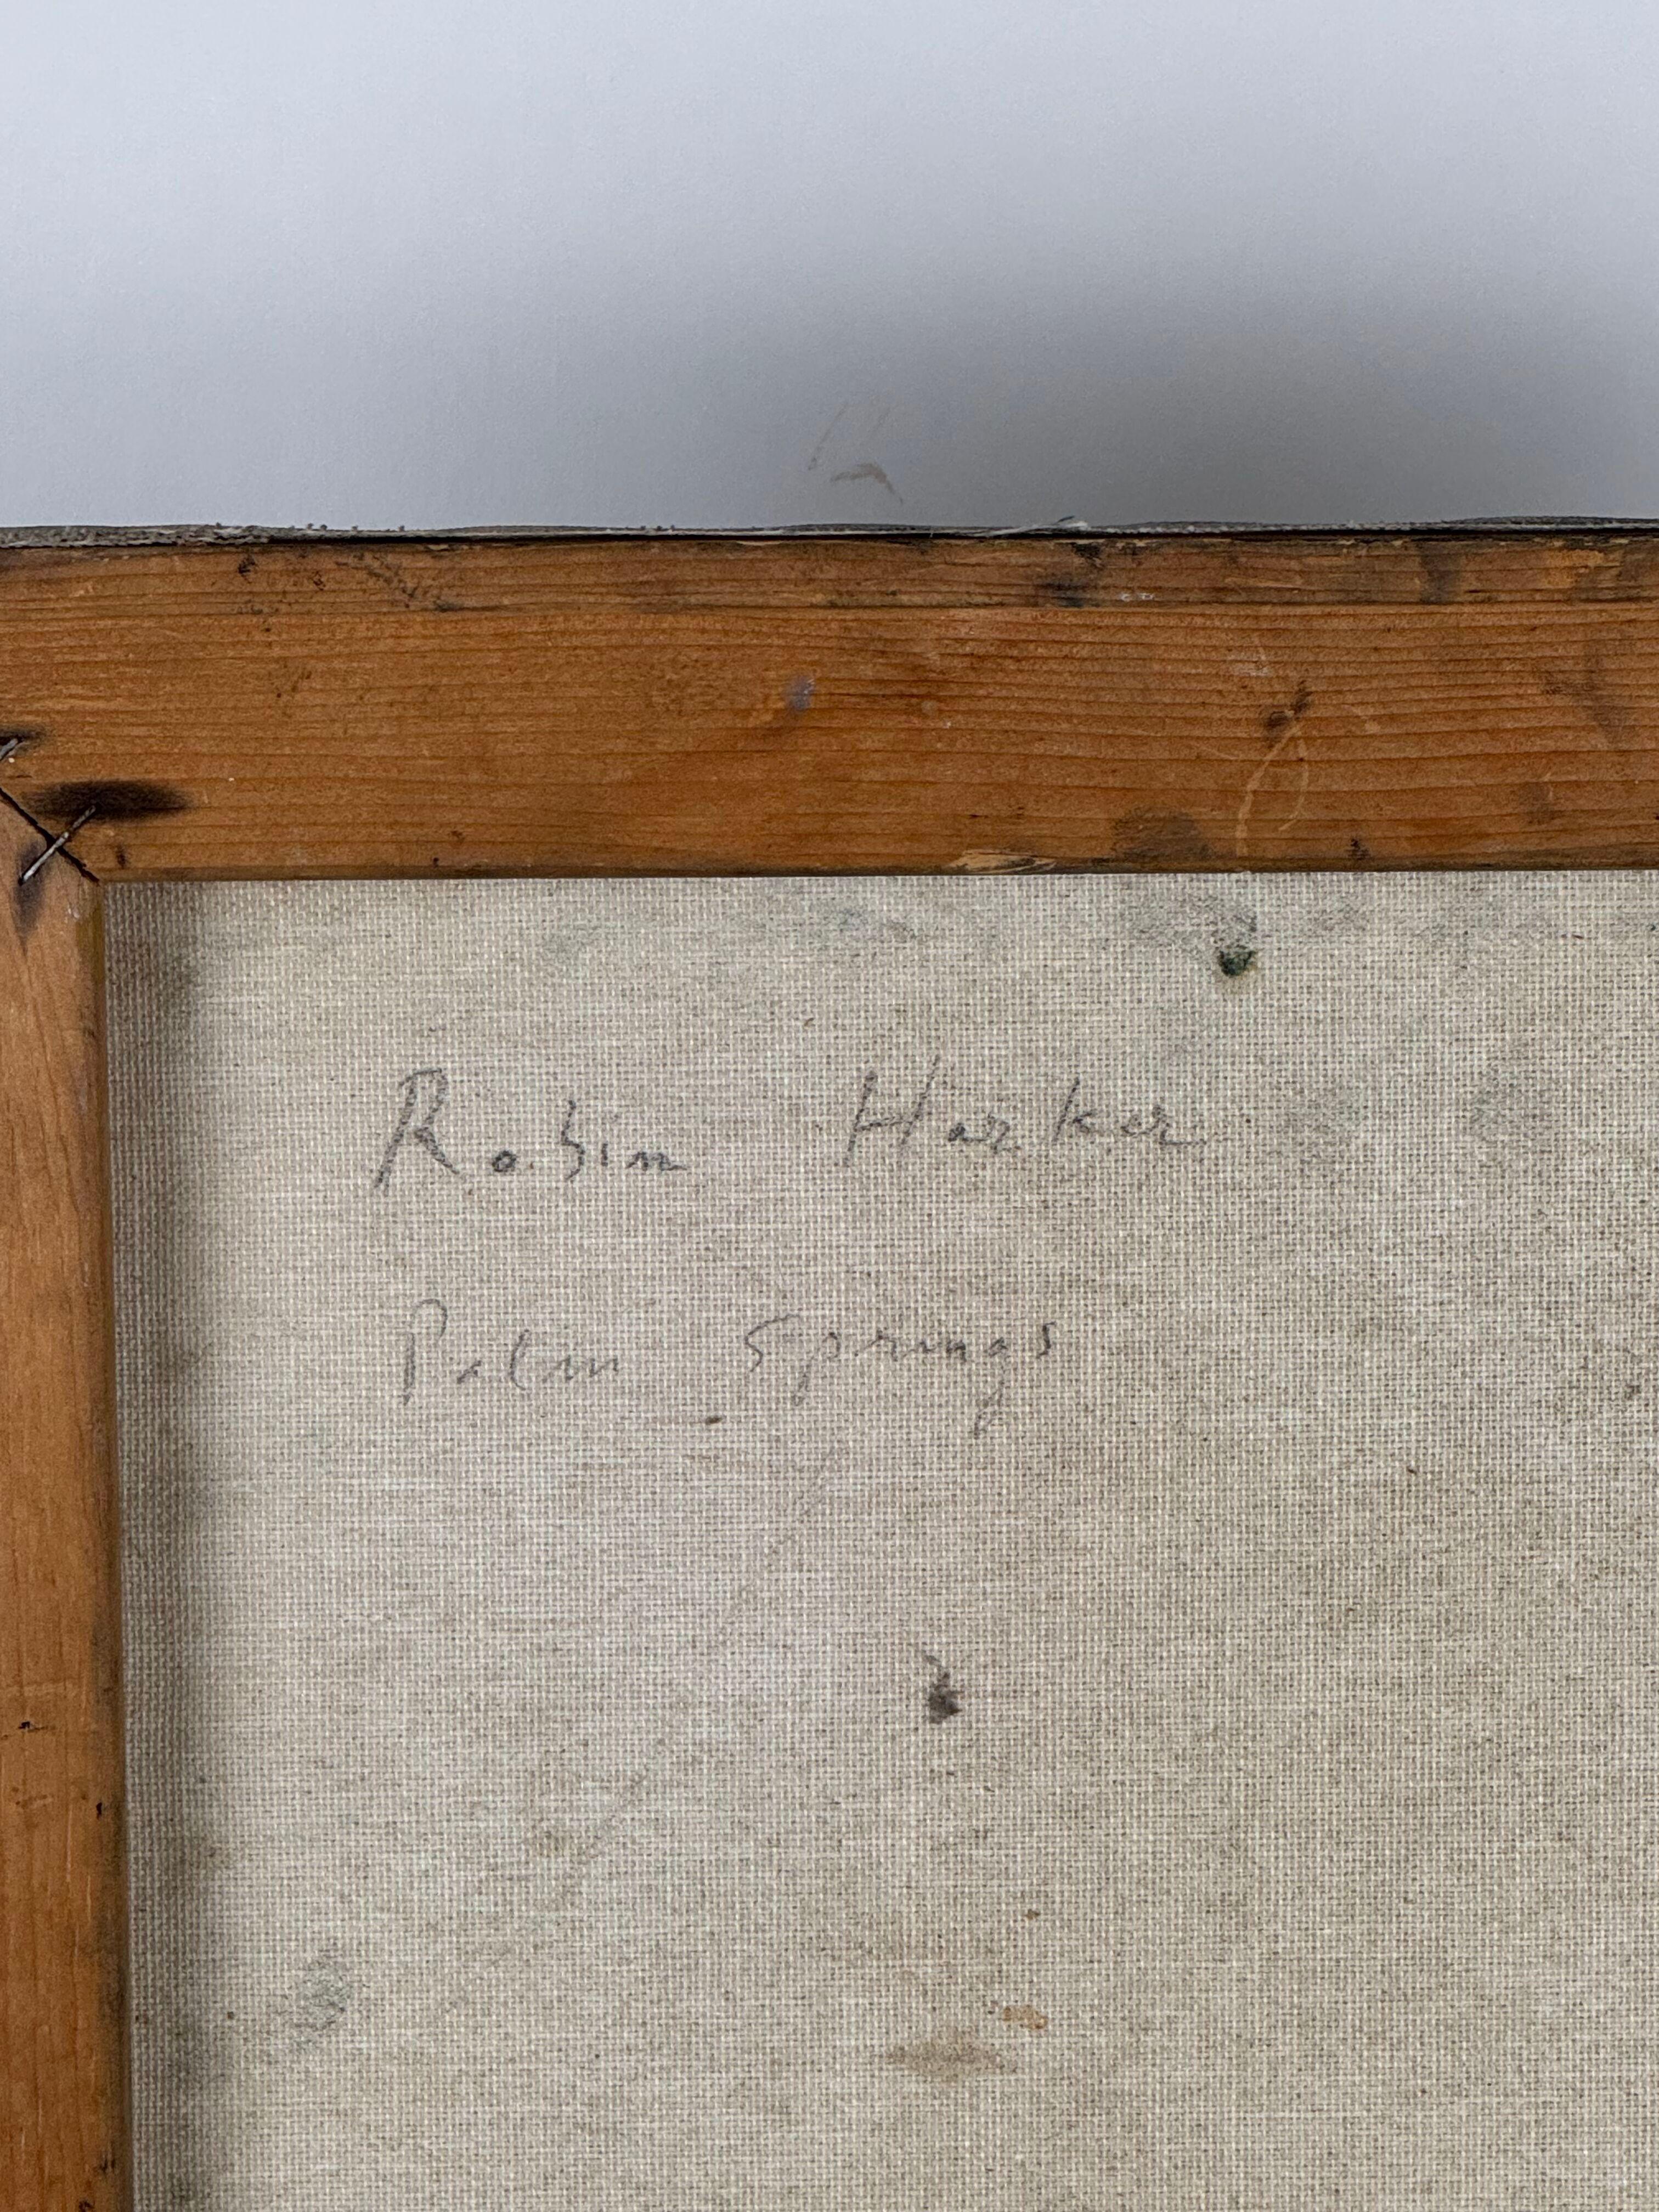 Robin Harker
Palm Springs